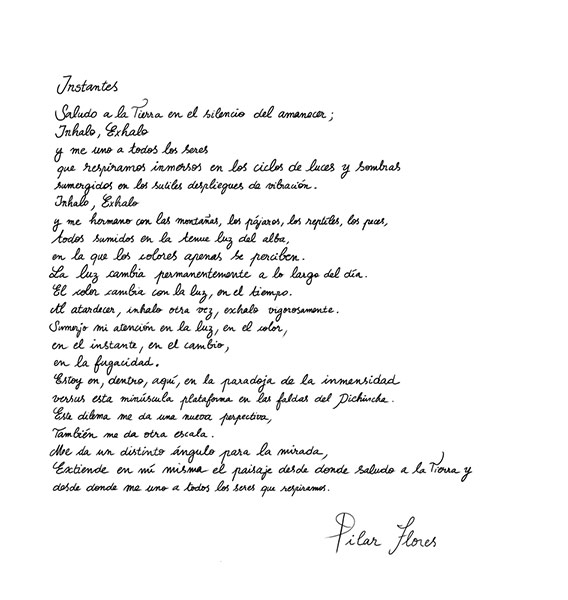 Instantes
Saludo a la Tierra en el silencio del amanecer;
Inhalo, Exhalo
y me uno a todos los seres
que respiramos inmersos en los ciclos de luces y sombras
sumergidos en los sutiles despliegues de vibración.
Inhalo, Exhalo
y me hermano con las montañas, los pájaros, los reptiles, los peces,
todos sumidos en la tenue luz del alba,
en la que los colores apenas se perciben.
La luz cambia permanentemente a lo largo del día.
El color cambia con la luz, en el tiempo.
Al atardecer, inhalo otra vez, exhalo vigorosamente.
Sumerjo mi atención en la luz, en el color,
en el instante, en el cambio,
en la fugacidad.
Estoy en, dentro, aquí, en la paradoja de la inmensidad
versus esta minúscula plataforma en las faldas del Pichincha.
Este dilema me da una nueva perspectiva,
También me da otra escala.
Me da un distinto ángulo para la mirada,
Extiende en mí misma el paisaje desde donde saludo a la Tierra y
desde donde me uno a todos los seres que respiramos.
Pilar Flores